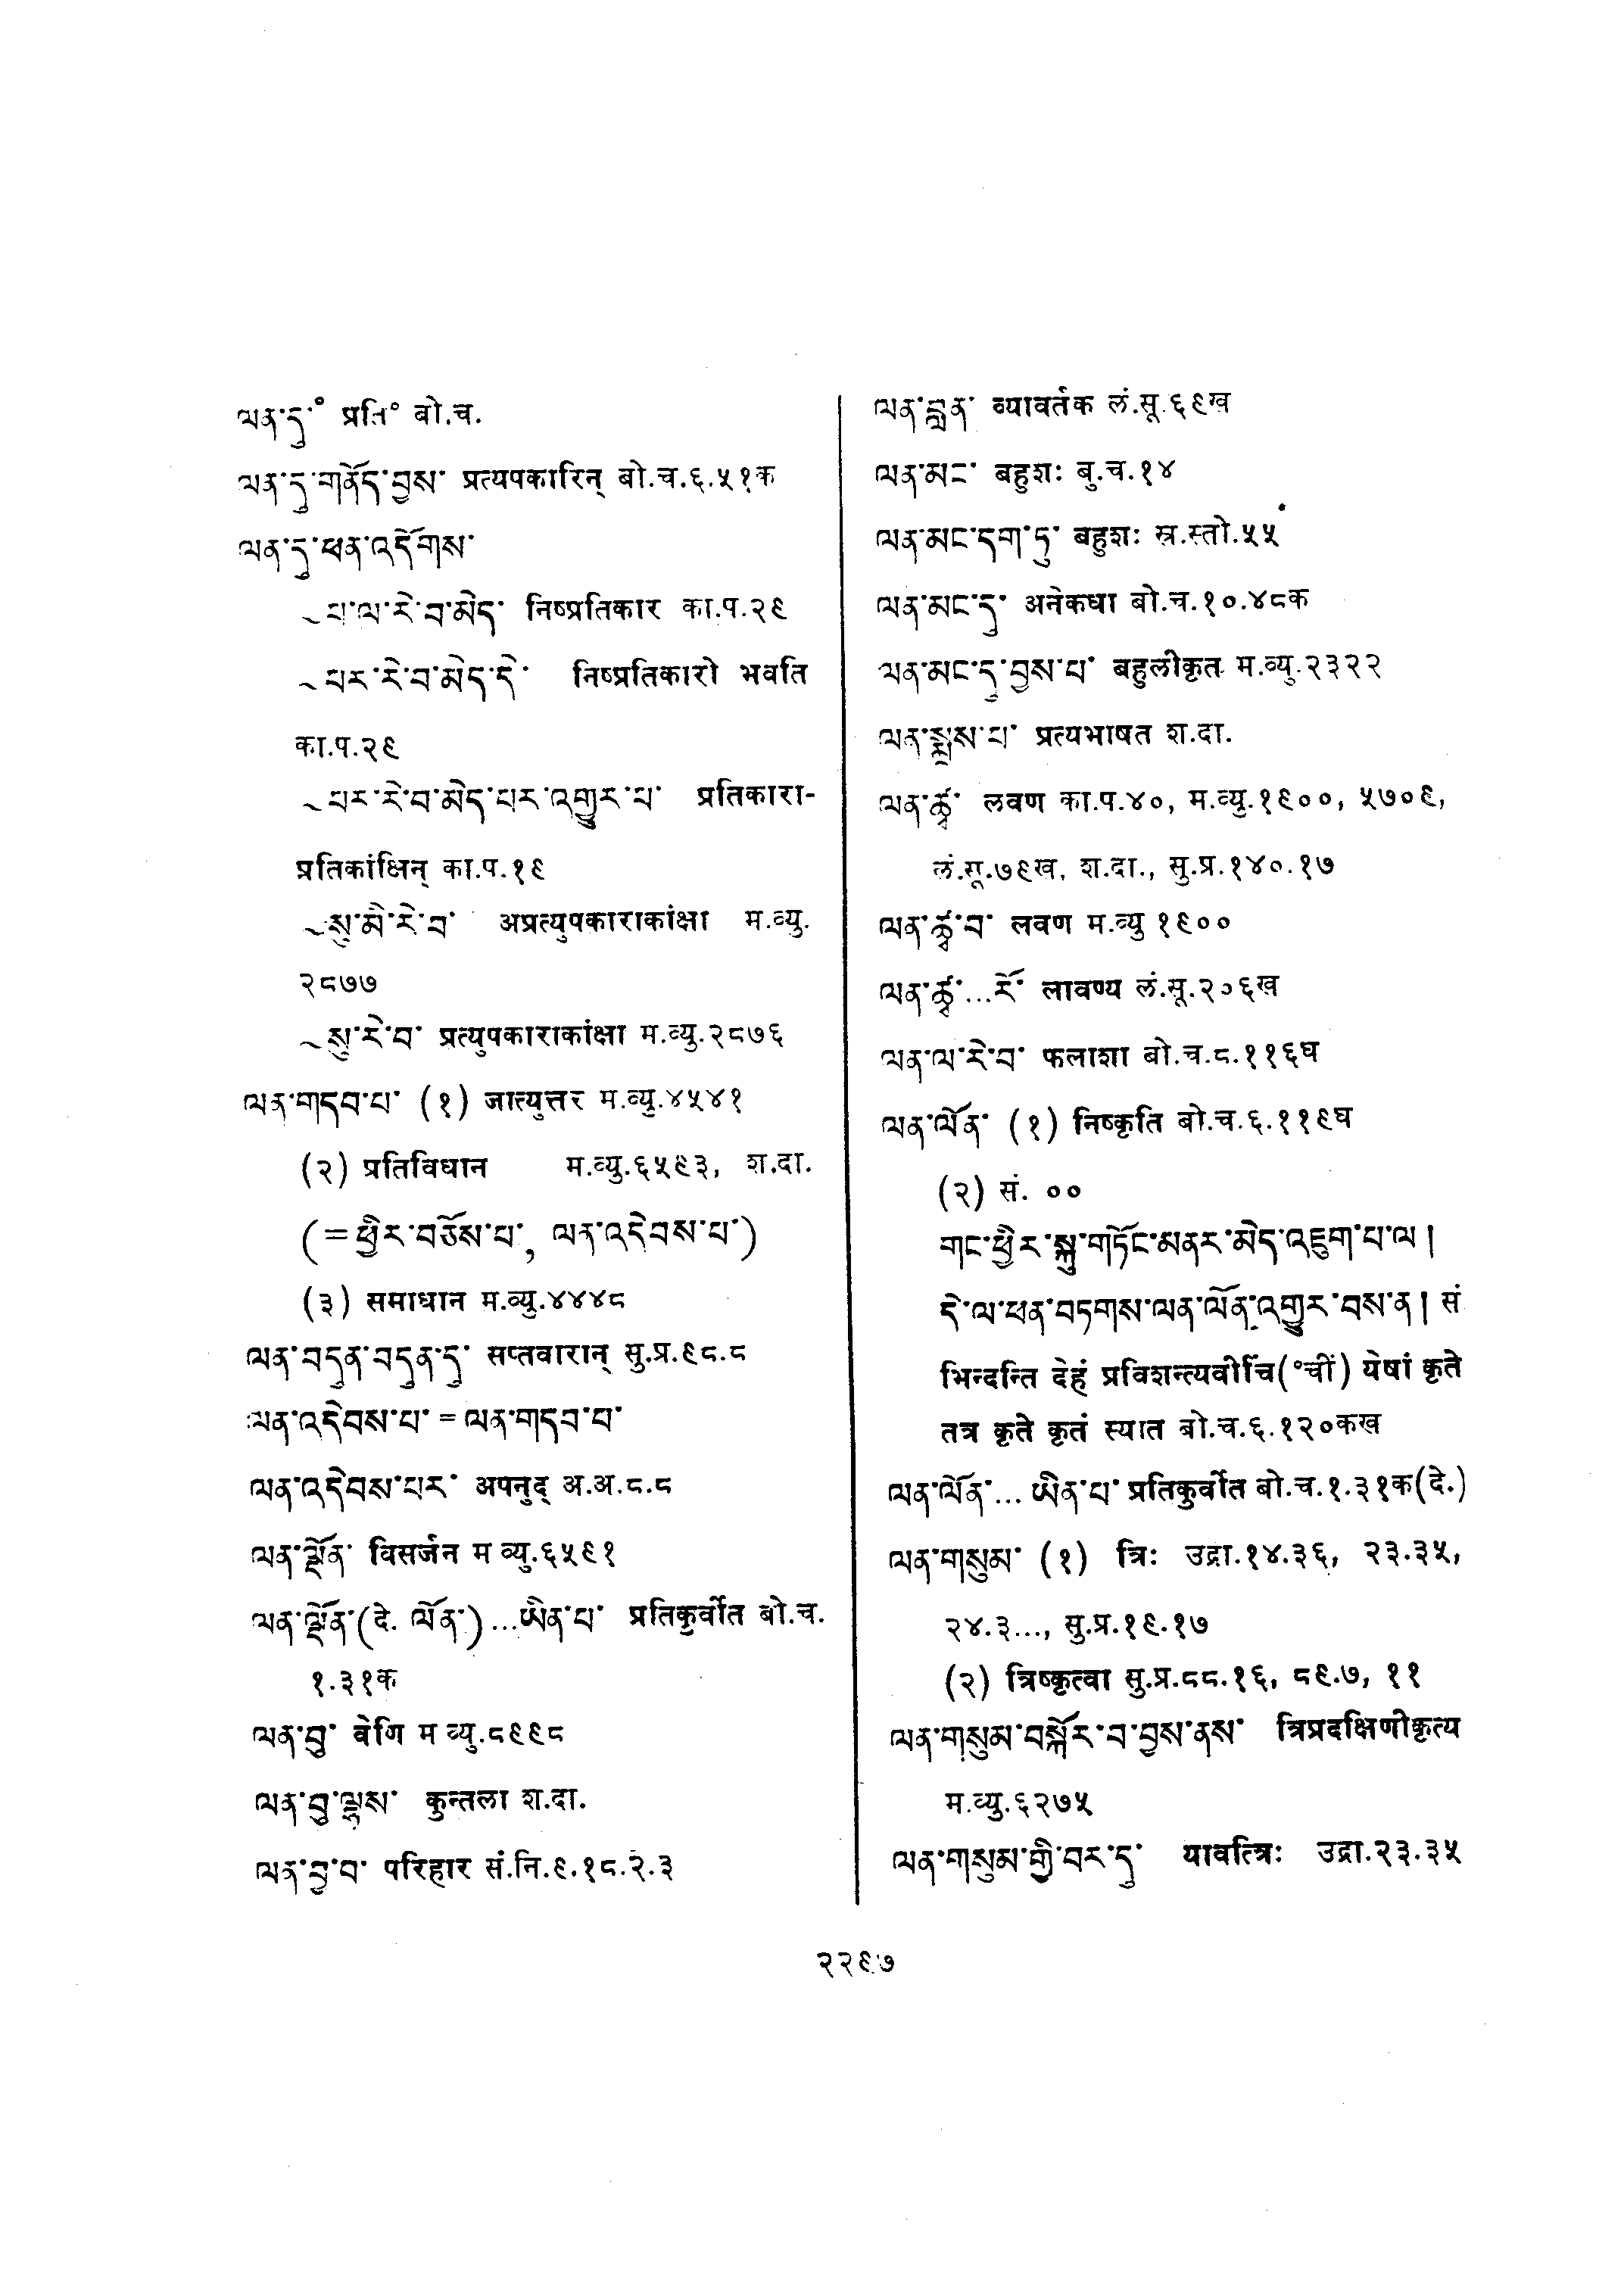 ལན་དུ་° प्रति° बो.च.
ལན་དུ་གནོད་བྱས་ प्रत्यपकारिन् बो.च.६.५१क
ལན་དུ་ཕན་འདོགས་
~པ་ལ་རེ་བ་མེད་ निष्प्रतिकार का.प.२९
~པར་རེ་བ་མེད་དེ་ निष्प्रतिकारो भवति
का.प.२९
~པར་རེ་བ་མེད་པར་འགྱུར་པ་ प्रतिकारा-
प्रतिकांक्षिन् का.प.१९
~སུ་མི་རེ་བ་ अप्रत्युपकाराकांक्षा म.व्यु.
२८७७
~སུ་རེ་བ་ प्रत्युपकाराकांक्षा म.व्यु.२८७६
ལན་གདབ་པ་ (१) जात्युत्तर म.व्यु.४५४१
(२) प्रतिविधान म.व्यु.६५९३, श.दा.
(=ཕྱིར་བཅོས་པ་, ལན་འདེབས་པ་)
(३) समाधान म.व्यु.४४४८
ལན་བདུན་བདུན་དུ་ सप्तवारान् सु.प्र.९८.८
ལན་འདེབས་པ་ = ལན་གདབ་པ་
ལན་འདེབས་པར་ अपनुद् अ.अ.८.८
ལན་ལྡོན་ विसर्जन म व्यु.६५९१
ལན་ལྡོན་(दे. ལོན་)...ཡིན་པ་ प्रतिकुर्वीत बो.च.
१.३१क
ལན་བུ་ वेणि म व्यु.८९९८
ལན་བུ་ལྷས་ कुन्तला श.दा.
ལན་བྱ་བ་ परिहार सं.नि.९.१८.२.३
ལན་བླན་ व्यावर्तक लं.सू.६९ख
ལན་མང་ बहुशः बु.च.१४
ལན་མང་དག་ཏུ་ बहुशः स्र.स्तो.५५
ལན་མང་དུ་ अनेकधा बो.च.१०.४८क
ལན་མང་དུ་བྱས་པ་ बहुलीकृत म.व्यु.२३२२
ལན་སྨྲས་པ་ प्रत्यभाषत श.दा.
ལན་ཚྭ་ लवण का.प.४०, म.व्यु.१९००, ५७०९,
लं.सू.७९ख, श.दा., सु.प्र.१४०.१७
ལན་ཚྭ་བ་ लवण म.व्यु १९००
ལན་ཚྭ་...རོ་ लावण्य लं.सू.२०६ख
ལན་ལ་རེ་བ་ फलाशा बो.च.८.११६घ
ལན་ལོན་ (१) निष्कृति बो.च.६.११९घ
(२) सं. ००
གང་ཕྱིར་སྐུ་གཏོང་མནར་མེད་འཇུག་པ་ལ།
དེ་ལ་ཕན་བཏགས་ལན་ལོན་འགྱུར་བས་ན། सं
भिन्दन्ति देहं प्रविशन्त्यवीचिं(°चीं) येषां कृते
तत्र कृते कृतं स्यात बो.च.६.१२०कख
ལན་ལོན་... ཡིན་པ་ प्रतिकुर्वीत बो.च.१.३१क(दे.)
ལན་གསུམ་ (१) त्रिः उद्रा.१४.३६, २३.३५,
२४.३..., सु.प्र.१९.१७
(२) त्रिष्कृत्वा सु.प्र.८८.१६, ८९.७, ११
ལན་གསུམ་བསྐོར་བ་བྱས་ནས་ त्रिप्रदक्षिणीकृत्य
म.व्यु.६२७५
ལན་གསུམ་གྱི་བར་དུ་ यावत्त्रिः उद्रा.२३.३५
२२९७